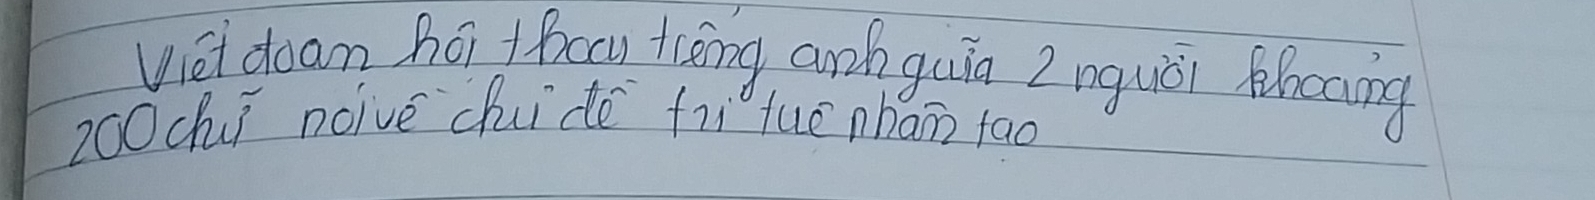 Viết đoạn hội thoại tiếng anh giữa 2 người khoảng
200 chữ nói về chủ đề trí tuệ nhân tạo